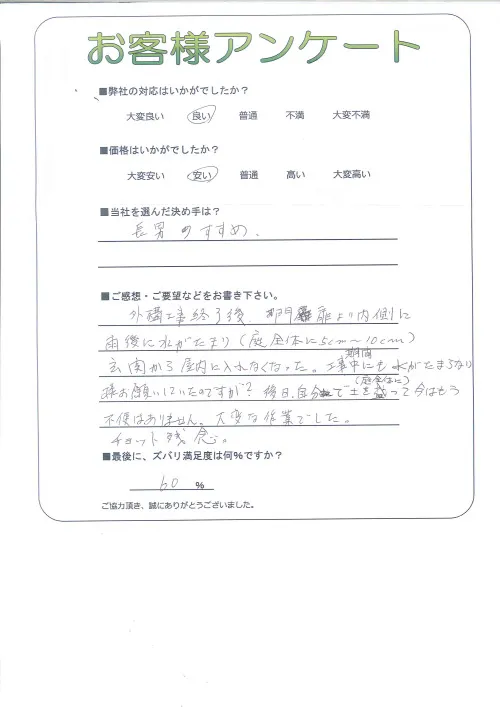 お客様アンケート
■弊社の対応はいかがでしたか？
大変良い 良い 普通 不満 大変不満
■価格はいかがでしたか？
大変安い 安い 普通 高い 大変高い
■当社を選んだ決め手は？
長男のすすめ。
■ご感想・ご要望などをお書き下さい。
外構工事終了後、門扉より内側に
雨後に水がたまり（庭全体に5cm～10cm）
玄関から屋内に入れなくなった。工事期間中にも水がたまるなり
お願いしていたのですが？後日、自分で（庭全体に）土を盛って今はもう
不便はありません。大変な作業でした。
チョット残念。
■最後に、ズバリ満足度は何%ですか？
60 %
ご協力頂き、誠にありがとうございました。